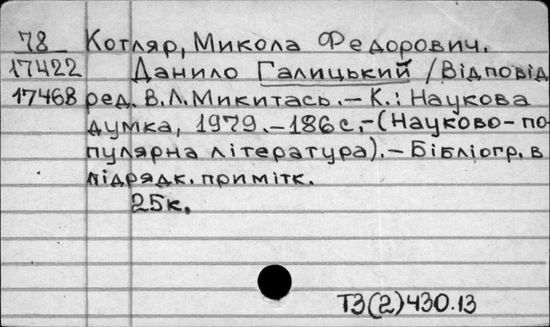 78 Котляр, Микола Федорович.
17422 Данило Галицький / Відповід
17468 ред. В.Л.Микитась. – К.: Наукова
думка, 1979. – 186 с. – (Науково-по-
пулярна література). – Бібліогр. в
підрядк. примітк.
25к.
Т3(2)430.13